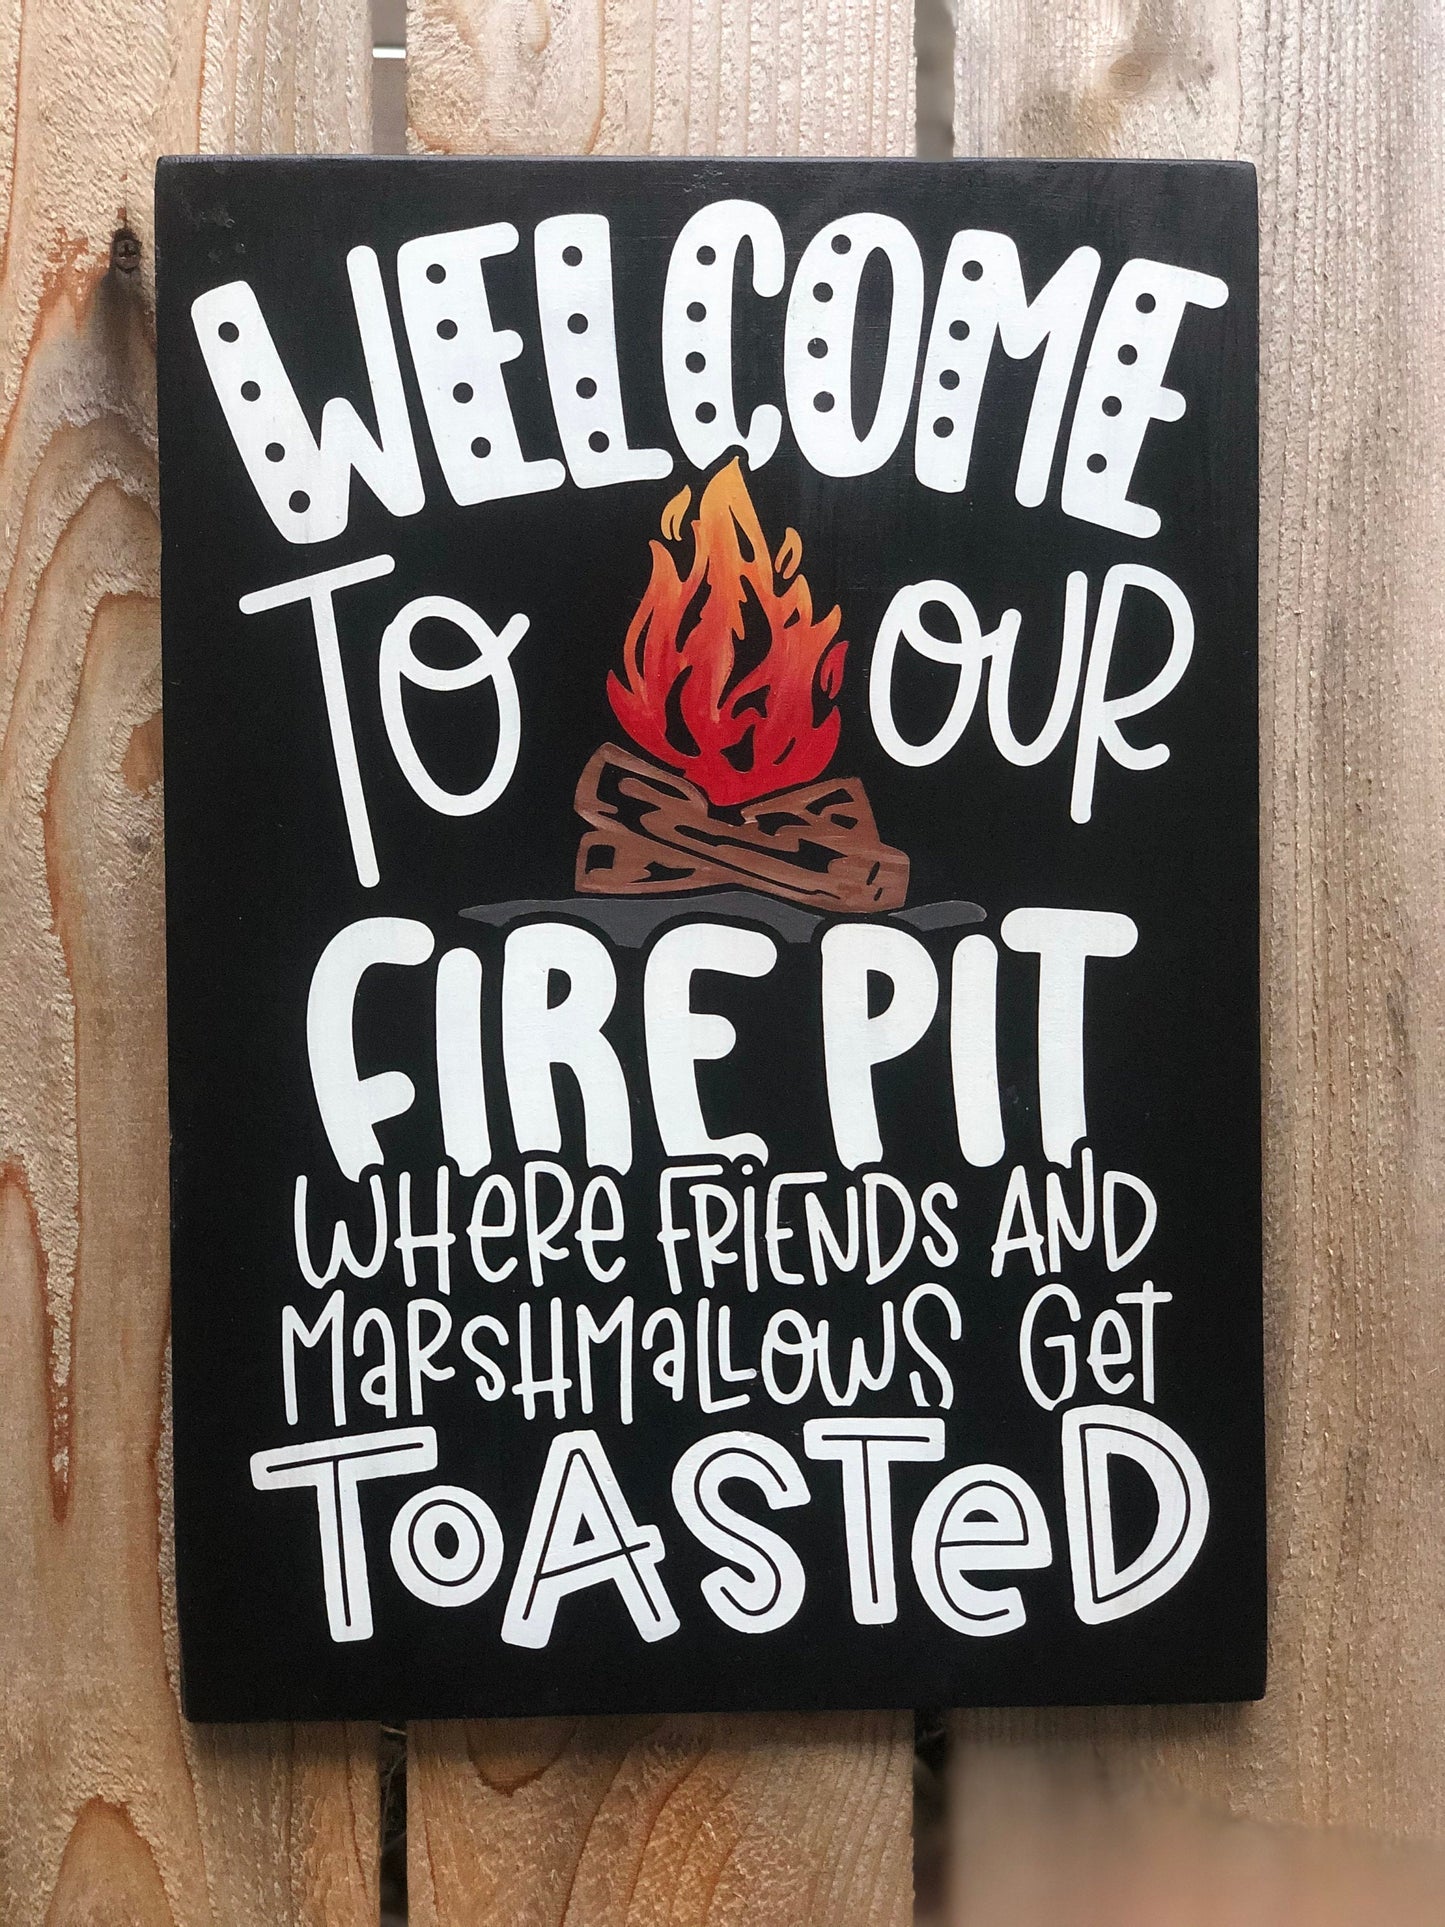 WELCOME
TO OUR
FIRE PIT
WHeRe FRiENDS AND
MaRSHMaLLOWS Get
ToASTeD